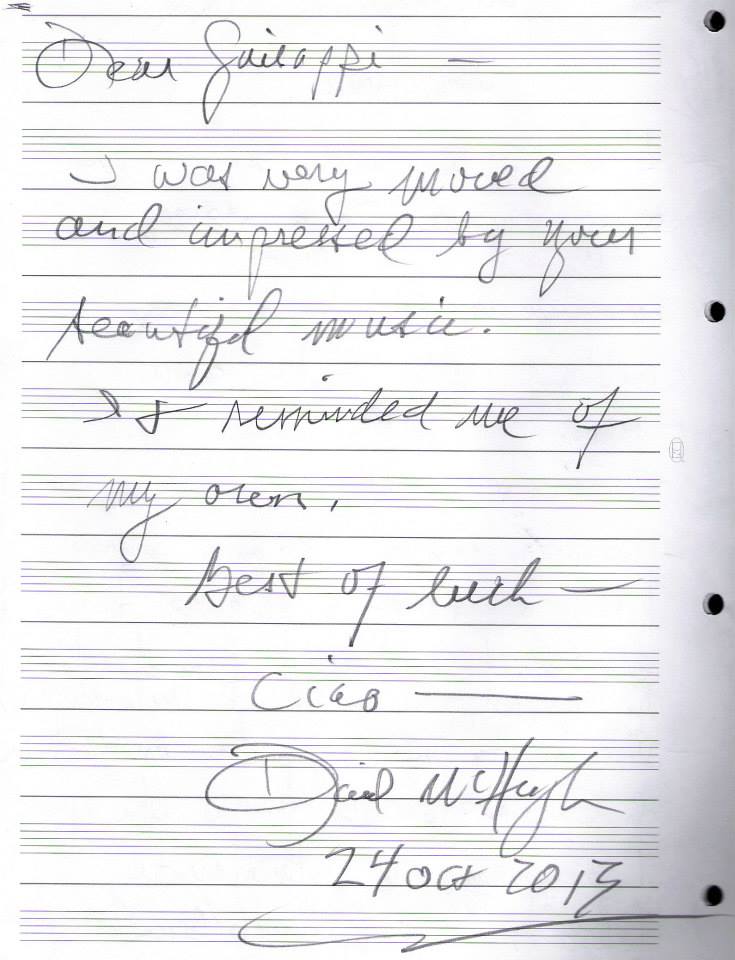 Dear Guiseppi —
I was very moved
and impressed by your
beautiful music.
It reminded me of
my own.
Best of luck —
Ciao —
David McHugh
24 Oct 2013